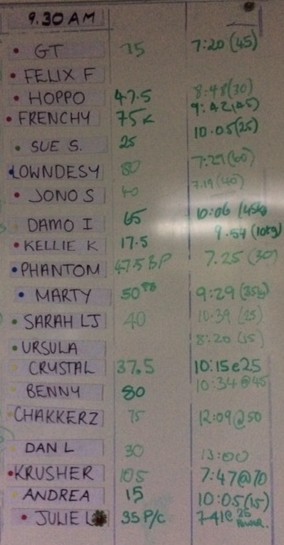 9.30 AM
GT 35 7:20 (45)
FELIX F
HOPPO 47.5 8:48(30)
FRENCHY 75K 9:42(65)
SUE S. 25 10:05(25)
LOWNDESY 80 7:27(60)
JONO S 40 7:19 (40)
DAMO I 65 10:06 (45)
KELLIE K 17.5 9:54 (10)
PHANTOM 47.5 BP 7.25 (30)
MARTY 50 9:29(35)
SARAH LJ 40 10:39 (25)
URSULA 8:20 (15)
CRYSTAL 37.5 10:15@25
BENNY 80 10:34@45
CHAKKERZ 75 12:09@50
DAN L 30 13:00
KRUSHER 105 7:47@70
ANDREA 15 10:05(15)
JULIE L 35 P/C 7:41@ 25